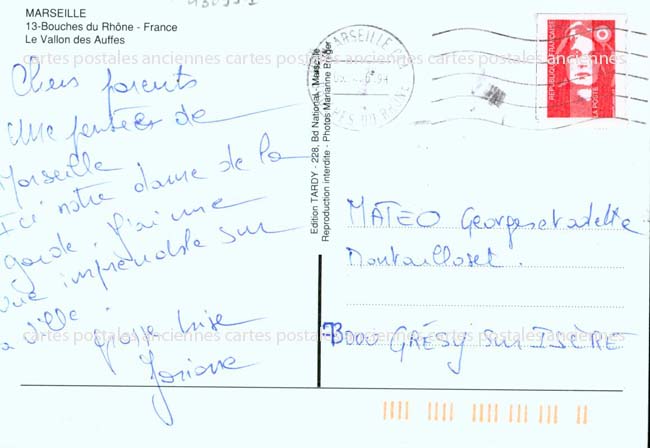 MARSEILLE
13-Bouches du Rhône - France
Le Vallon des Auffes
cartes postales anciennes cartes postales anciennes cartes postales anciennes
Chers parents
Une pensée de
Marseille
Ici notre dame de la
garde. J'ai une
vue imprenable sur
la ville.
grosse bise
Josiane
Edition TARDY - 228, Bd National - Marseille
Reproduction interdite - Photos Marianne Breger
MARSEILLE
94
BOUCHES DU RHONE
REPUBLIQUE FRANÇAISE
LA POSTE
MATEO Georges et adette
Montailloset.
73000 GRÉSY SUR ISÈRE
cartes postales anciennes cartes postales anciennes cartes postales anciennes